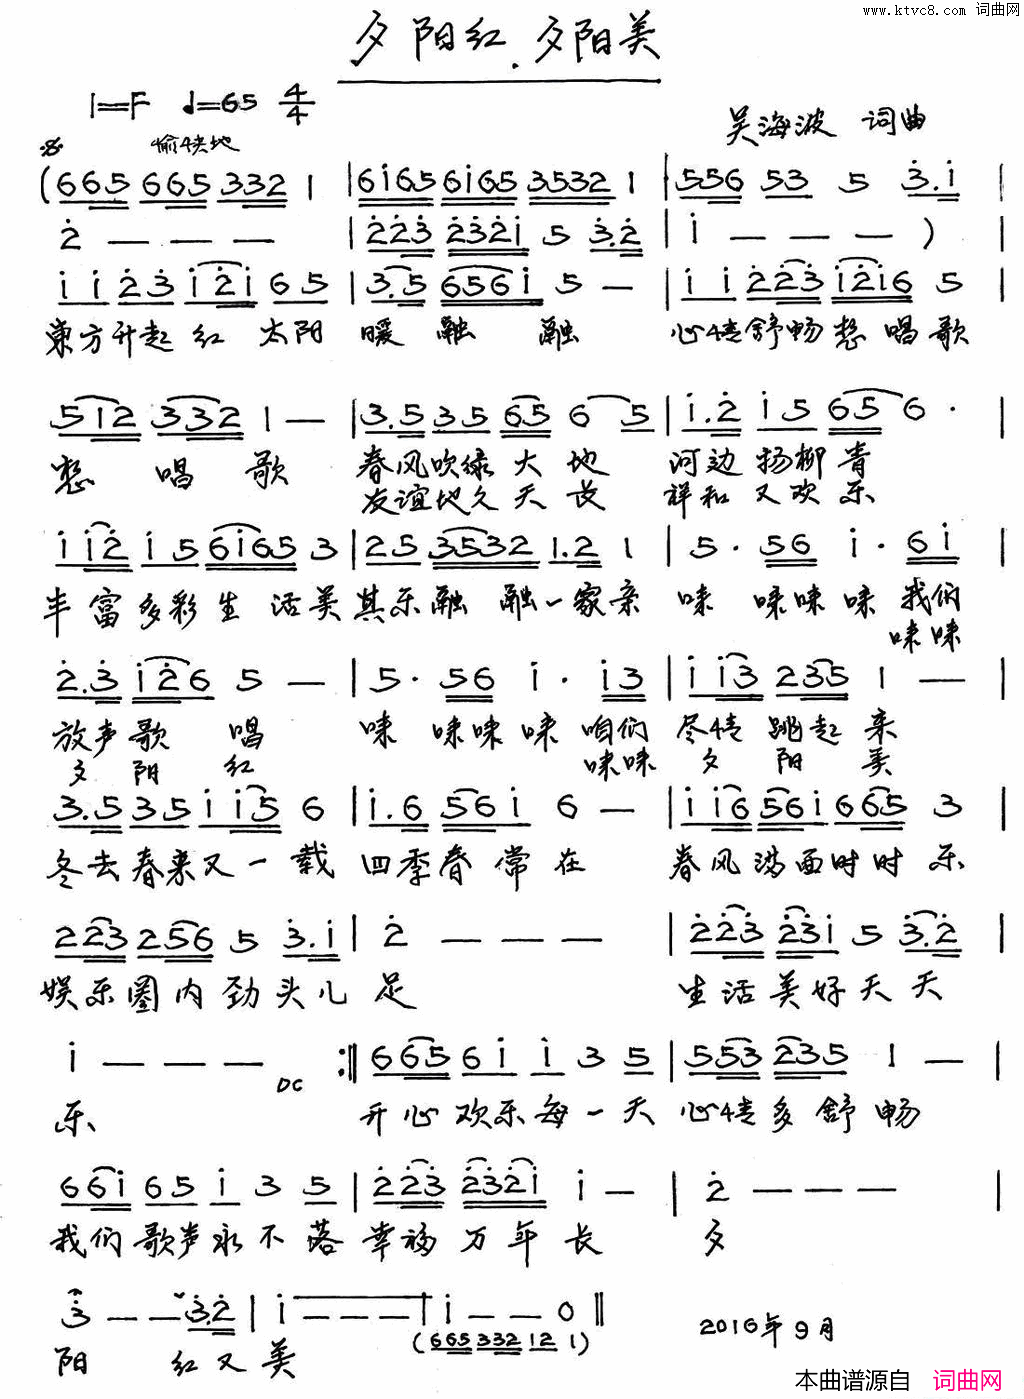 www.ktvc8.com 词曲网
夕阳红.夕阳美
1=F ♩=65 4/4
吴海波 词曲
愉快地
(665 665 332 1 | 6i65 6i65 3532 1 | 556 53 5 3.i |
2 — — — | 223 2321 5 3.2 | i — — — ) |
i i 2 3 i2i 6 5 | 3.5 656i 5 — | i i 2 23 i2i6 5 |
东方升起红 太阳 暖 融 融 心情舒畅想 唱歌
512 332 1 — | 3.5 35 65 6 5 | i.2 i5 65 6 · |
想 唱 歌 春风吹绿 大 地 河边 扬柳 青
友谊地久 天 长 祥和 又欢 乐
i i2 i5 6i65 3 | 25 3532 1.2 1 | 5 · 56 i · 6i |
丰富多彩生 活美其乐融 融一家亲 咪 咪咪咪 我们
咪咪
2.3 i26 5 — | 5 · 56 i · i3 | i i3 235 1 — |
放声歌 唱 咪 咪咪咪 咱们 尽情 跳起 来
夕 阳 红 咪咪 夕 阳 美
3.5 35 i i5 6 | i.6 56i 6 — | i i6 56i 665 3 |
冬去春来又一载 四季春常在 春风满面时时 乐
223 256 5 3.i | 2 — — — | 223 23i 5 3.2 |
娱乐圈内劲头儿 足 生活美好天天
i — — — DC :‖ 6 65 6i i 3 5 | 553 235 1 — |
乐 开心欢乐每一天 心情多舒畅
66i 65 i 3 5 | 223 232i i — | 2 — — — |
我们歌声永不落 幸福万年长 夕
3 — — 3.2 | i — — — | i — — 0 ‖
(665 332 12 1)
阳 红又美
2016年9月
本曲谱源自 词曲网